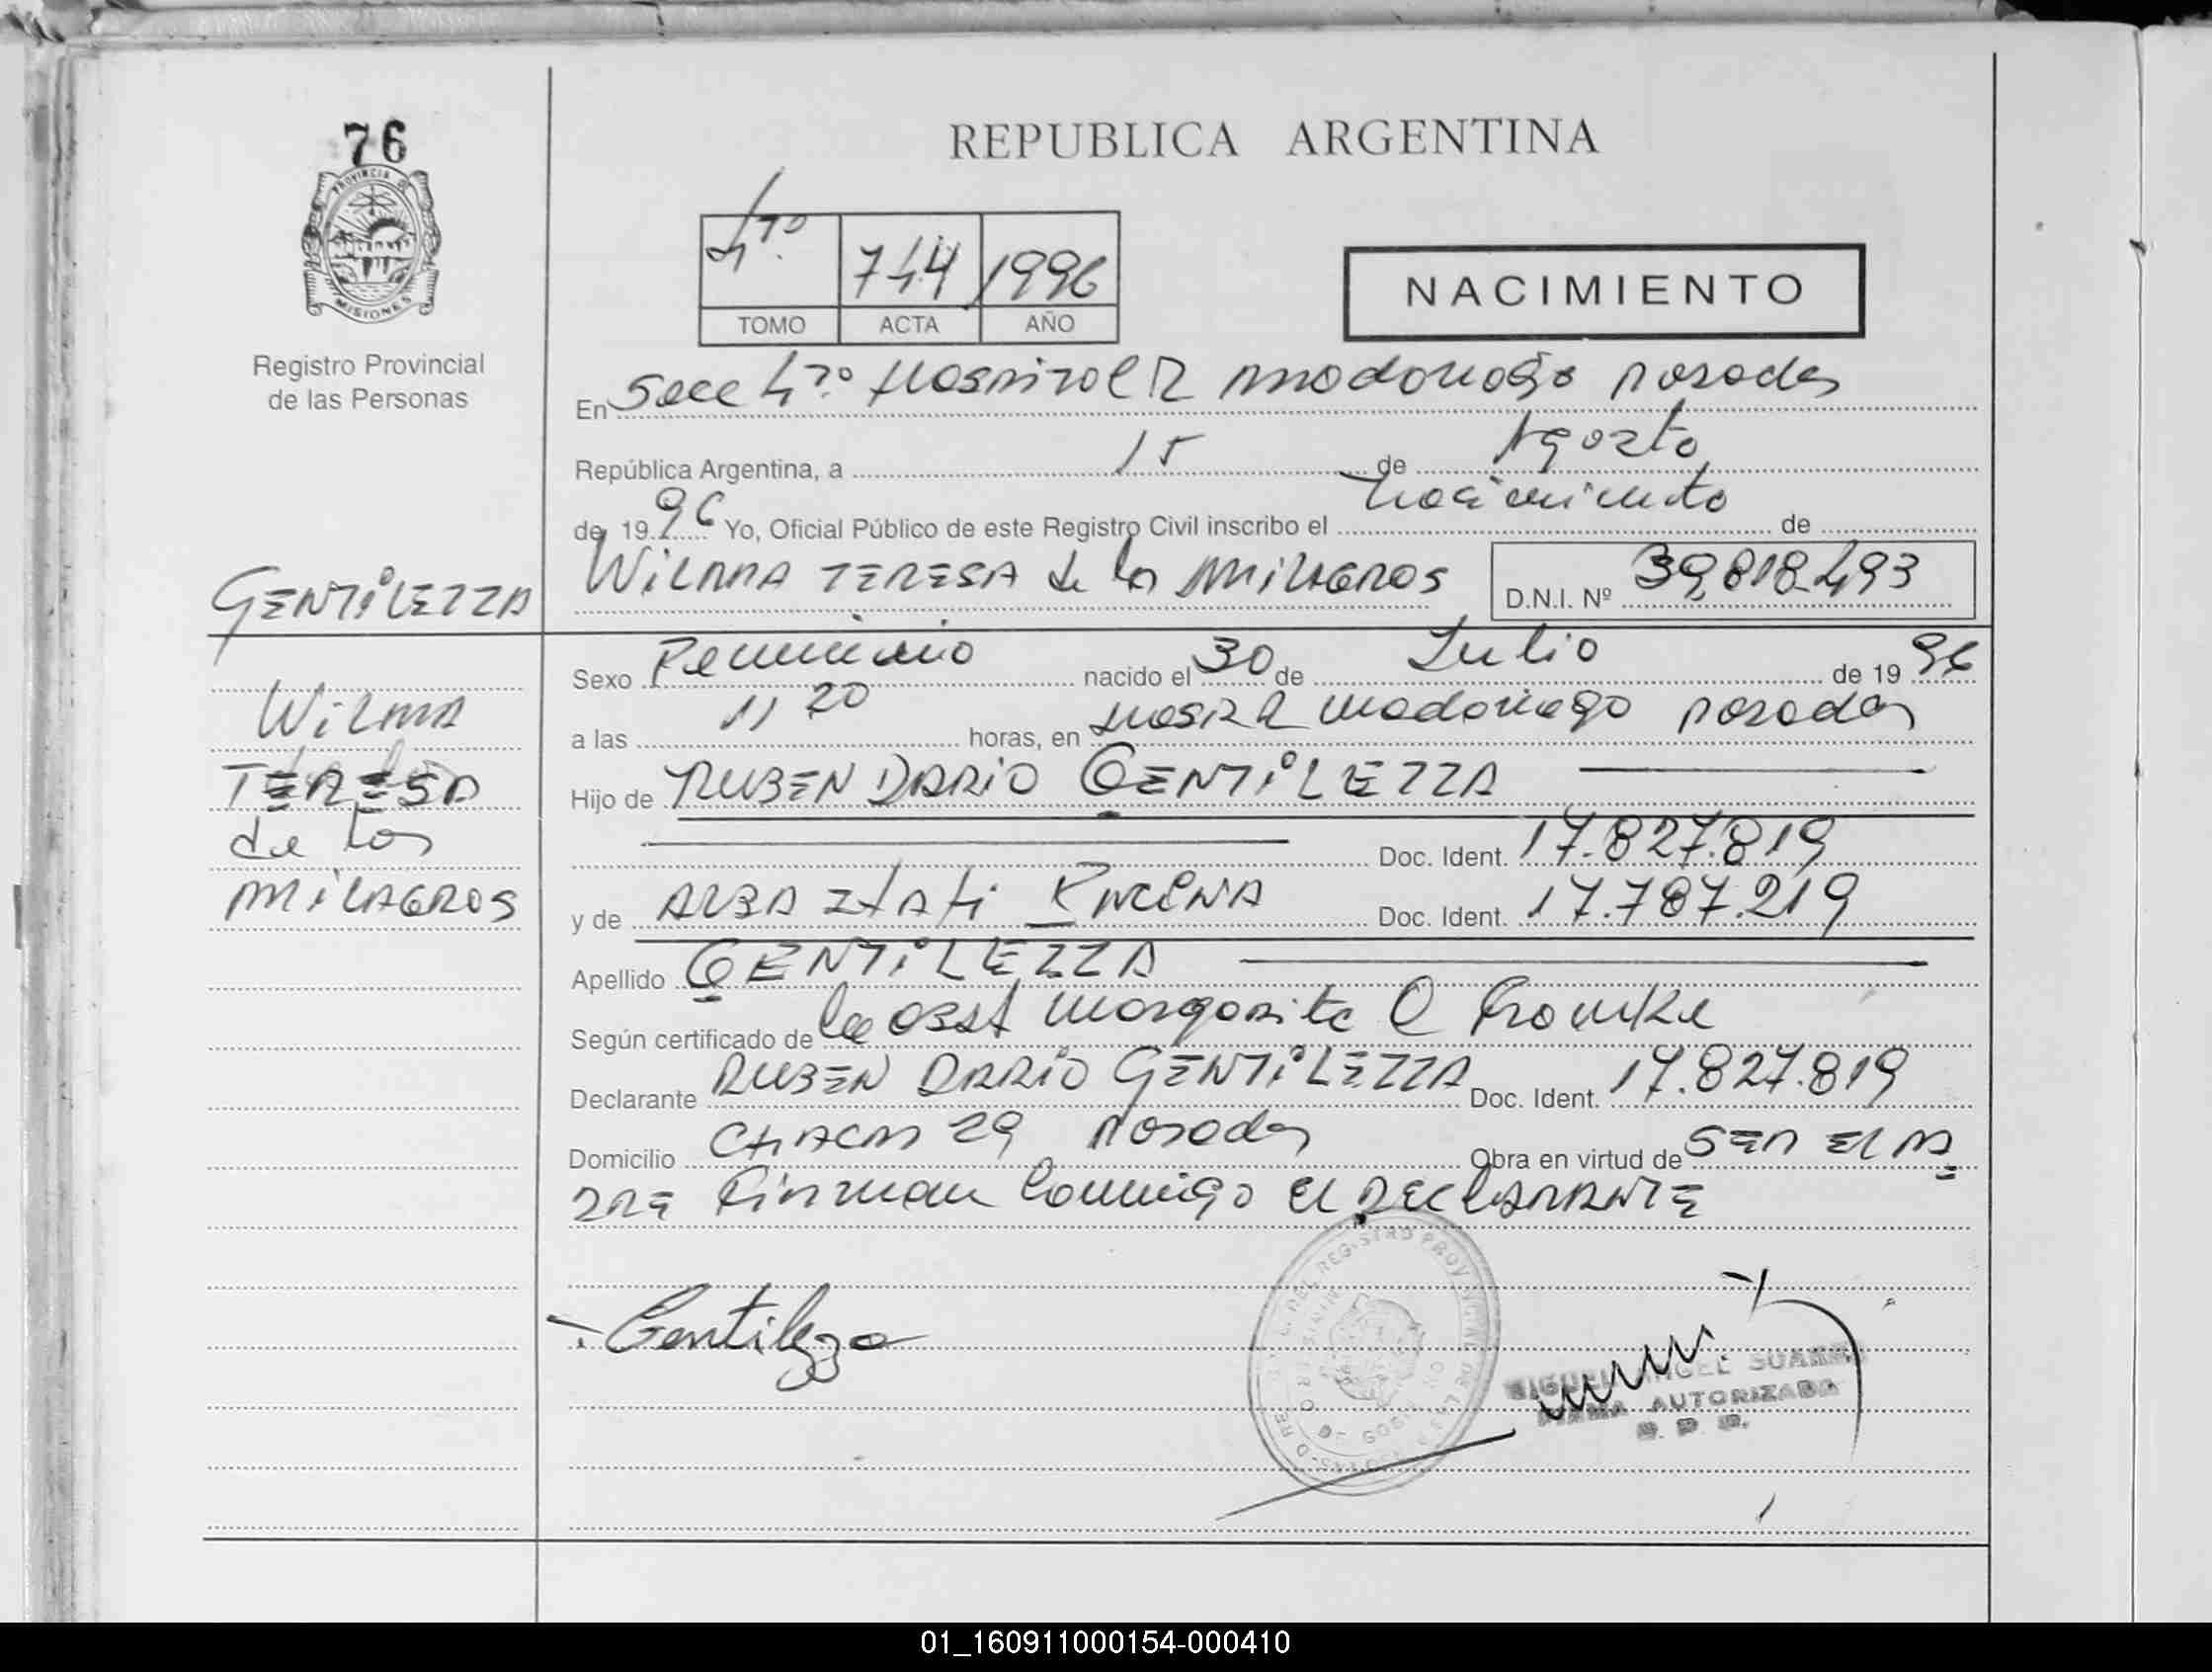 76
PROVINCIA DE
MISIONES
Registro Provincial
de las Personas
REPUBLICA ARGENTINA
4to. 744 1996
TOMO ACTA AÑO
NACIMIENTO
En Secc 4to Hospital R Madariaga Posadas
República Argentina, a 15 de Agosto
de 1996 Yo, Oficial Público de este Registro Civil inscribo el nacimiento de
GENTILEZZA
WILMA TERESA de los MILAGROS D.N.I. Nº 39.818.493
Sexo Femenino nacido el 30 de Julio de 1996
Wilma
a las 11 20 horas, en Hosp R Madariaga Posadas
TERESA
Hijo de RUBEN DARIO GENTILEZZA
de los
Doc. Ident. 17.827.819
MILAGROS
y de ALBA ITATI ENCINA Doc. Ident. 17.787.219
Apellido GENTILEZZA
Según certificado de la Obst Margarita
Declarante RUBEN DARIO GENTILEZZA Doc. Ident. 17.827.819
Domicilio CHACRA 29 Posadas Obra en virtud de SER EL PA
DRE Firman Conmigo el DECLARANTE
Gentilezza
MIGUEL ANGEL SUAREZ
FIRMA AUTORIZADA
01_160911000154-000410